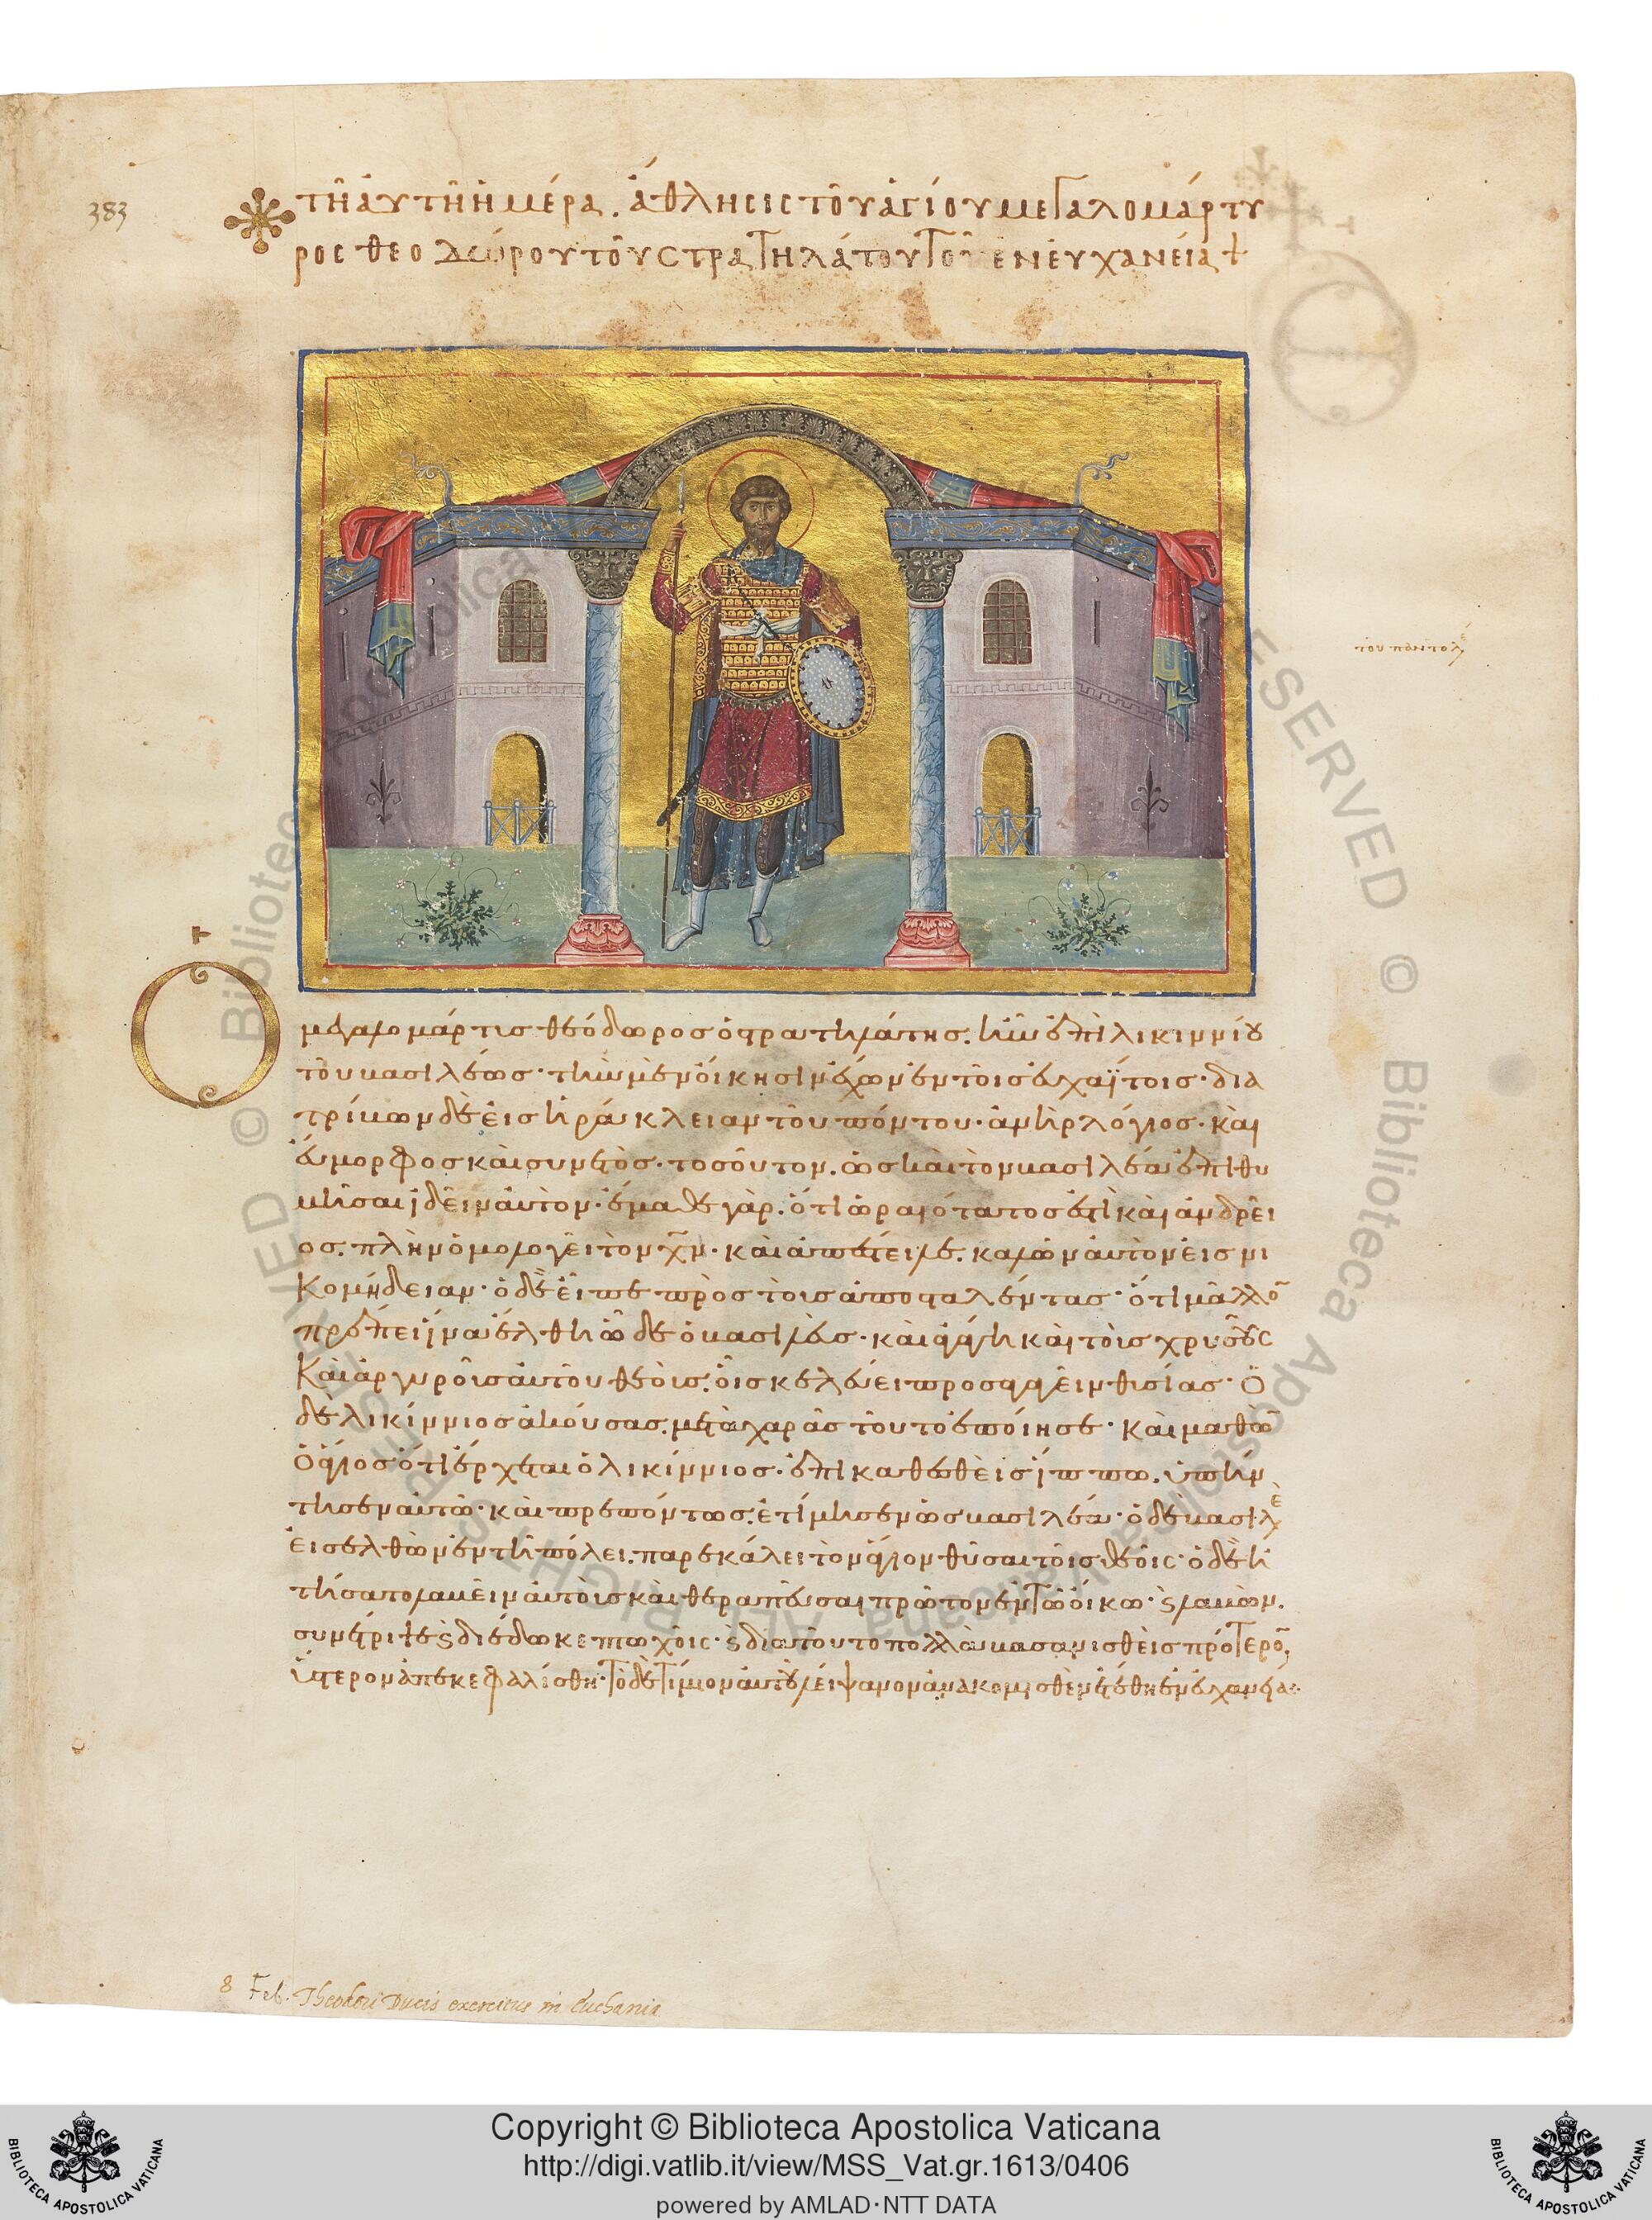 383
τῆ ἀυτῆ ἡμέρα. ἄθλησις τοῦ ἁγίου μεγαλομάρτυ
ρος θεοδώρου τοῦ στρατηλάτου τοῦ ἐν ἐυχανεία +
Ὁ
μεγαλομάρτυς θεόδωρος ὁ στρατηλάτης. ἦν ἐπὶ λικιννίου
τοῦ βασιλέως· τὴν μὲν ὄικησιν ἔχων ἐν τοῖς ἐυχαΐτοις· δια
τρίβων δὲ ἐις ἡράκλειαν τοῦ πόντου· ἀνὴρ λόγιος· καὶ
ἔυμορφος καὶ συνετὸς· τοσοῦτον. ὡς καὶ τὸν βασιλέα ἐπιθυ
μῆσαι ἰδεῖν ἀυτὸν· ἔμαθε γὰρ. ὅτι ὡραιότατος ἐστὶ καὶ ἀνδρεῖ
ος. πλὴν ὁμολογεῖ τὸν χν· καὶ ἀπέστειλε. καλῶν ἀυτὸν ἐις νι
κομήδειαν· ὁ δὲ εἶπε πρὸς τοὺς ἀποσταλέντας· ὅτι μᾶλλο
πρέπει ἵνα ἔλθη ὧδε ὁ βασιλεὺς· καὶ στήση καὶ τοὺς χρυσοῦς
καὶ ἀργυροῦς ἀυτοῦ θεοὺς. οἷς κελεύει προσάγειν θυσίας· Ὁ
δὲ λικίννιος ἀκούσας. μετὰ χαρᾶς τοῦτο ἐποίησε· καὶ μαθὼ
ὁ ἅγιος ὅτι ἔρχεται ὁ λικίννιος. ἐπικαθεσθεὶς ἵππω. ὑπήν
τησεν ἀυτῶ· καὶ πρεπόντως. ἐτίμησεν ὡς βασιλέα· ὁ δὲ βασιλε
ἐισελθὼν ἐν τῆ πόλει. παρεκάλει τὸν ἅγιον θῦσαι τοῖς θεοῖς· ὁ δὲ ἠ
τήσατο λαβεῖν ἀυτοὺς καὶ θεραπεῦσαι πρῶτον ἐν τῶ ὄικω· ϗ λαβὼν.
συνέτριψε ϗ διέδωκε πτωχοῖς· ϗ διὰ τοῦτο πολλὰ βασανισθεὶς πρότερο,
ὕστερον ἀπεκεφαλίσθη· τὸ δὲ τίμιον ἀυτοῦ λείψανον ἀνακομισθὲν ἐτέθη ἐν ἐυχανεία:
8 Feb. Theodori Ducis exercitus in Euchania
Copyright © Biblioteca Apostolica Vaticana
http://digi.vatlib.it/view/MSS_Vat.gr.1613/0406
powered by AMLAD·NTT DATA
BIBLIOTECA APOSTOLICA VATICANA
BIBLIOTECA APOSTOLICA VATICANA
© Biblioteca Apostolica Vaticana ALL RIGHTS RESERVED